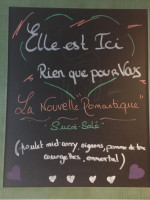 Elle est Ici
Rien que pour Vous
"La Nouvelle "Romantique"
Sucré-Salé
(poulet mid curry, oignons, pomme de terre
courgettes, emmental)